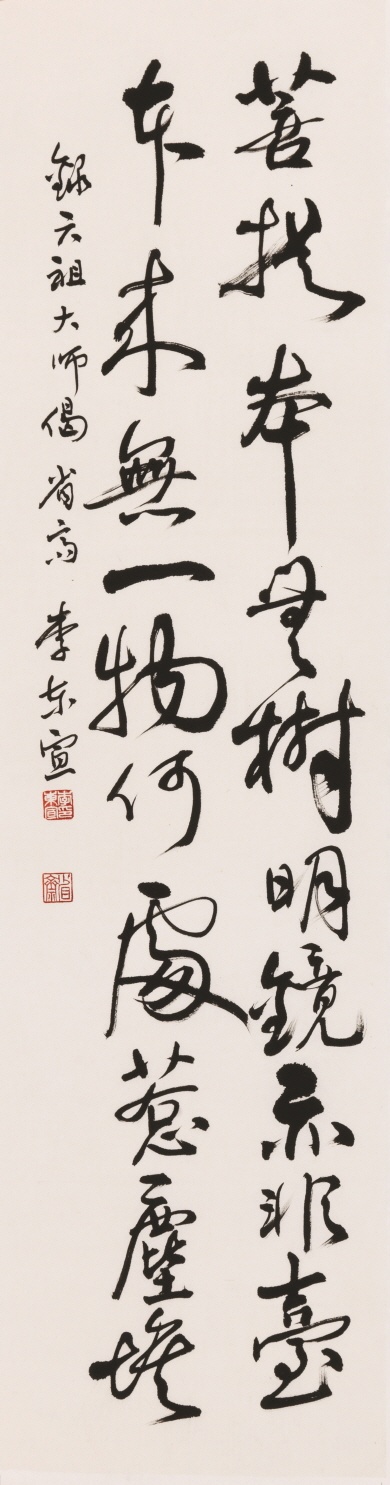 菩提本無樹明鏡亦非臺
本來無一物何處惹塵埃
錄六祖大師偈 省齋 李東宣
李東宣印
省齋